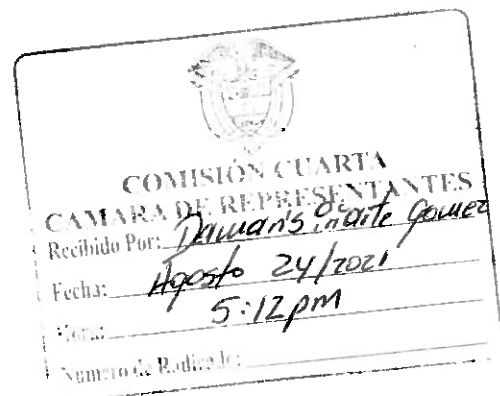 COMISIÓN CUARTA
CAMARA DE REPRESENTANTES
Recibido Por: Damaris Iriarte Gomez
Fecha: Agosto 24/2021
Hora: 5:12pm
Numero de Radicado: